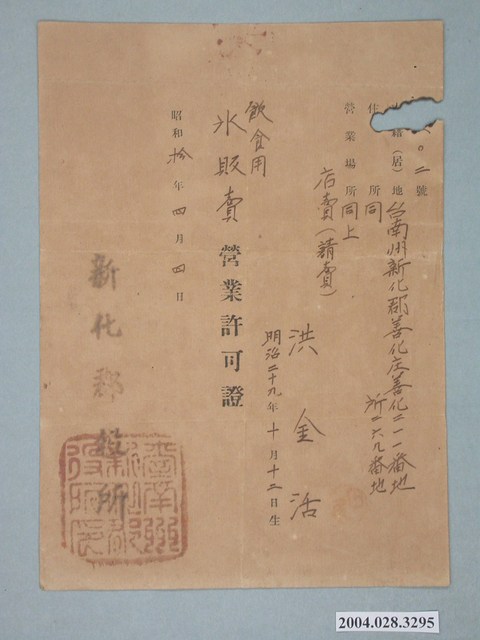 〇二號
籍(居)地 台南州新化郡善化庄善化二一一番地
住所 同 所二六九番地
營業場所 同上
店賣(請賣)
洪金活
明治二十九年十月十三日生
飲食用
氷販賣營業許可證
昭和拾年四月四日
新化郡役所
2004.028.3295